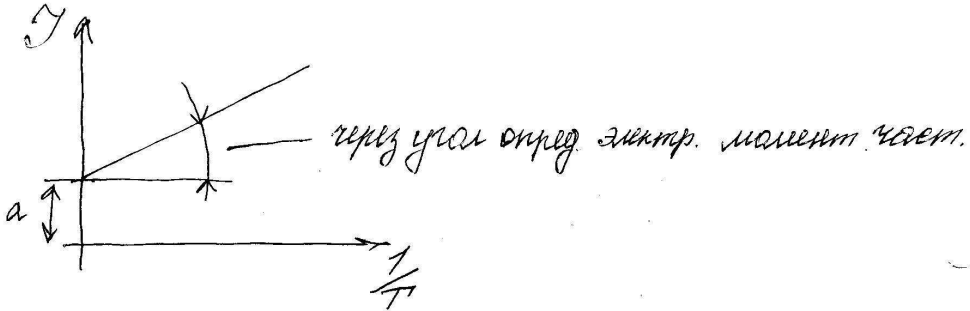 J
через угол опред. электр. момент част.
a
1/T